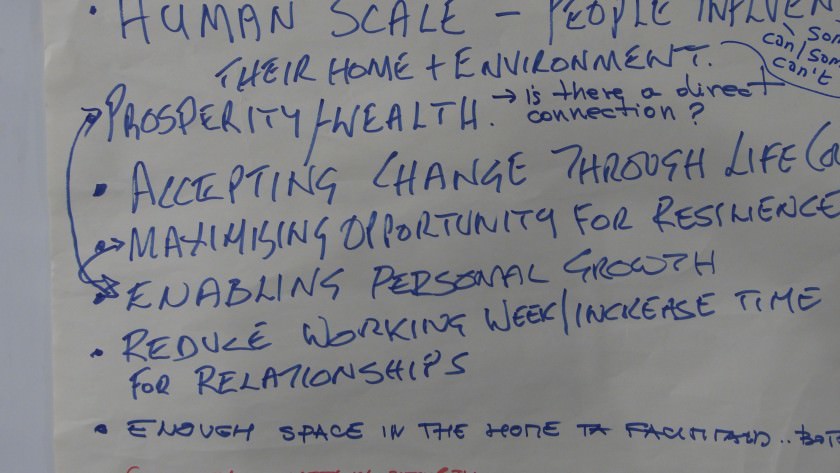 • HUMAN SCALE – PEOPLE INFLUEN
THEIR HOME + ENVIRONMENT.
som
can/som
can't
PROSPERITY/WEALTH. → is there a direct
connection?
• ACCEPTING CHANGE THROUGH LIFE (
MAXIMISING OPPORTUNITY FOR RESILIENCE
ENABLING PERSONAL GROWTH
• REDUCE WORKING WEEK/INCREASE TIME
FOR RELATIONSHIPS
• ENOUGH SPACE IN THE HOME